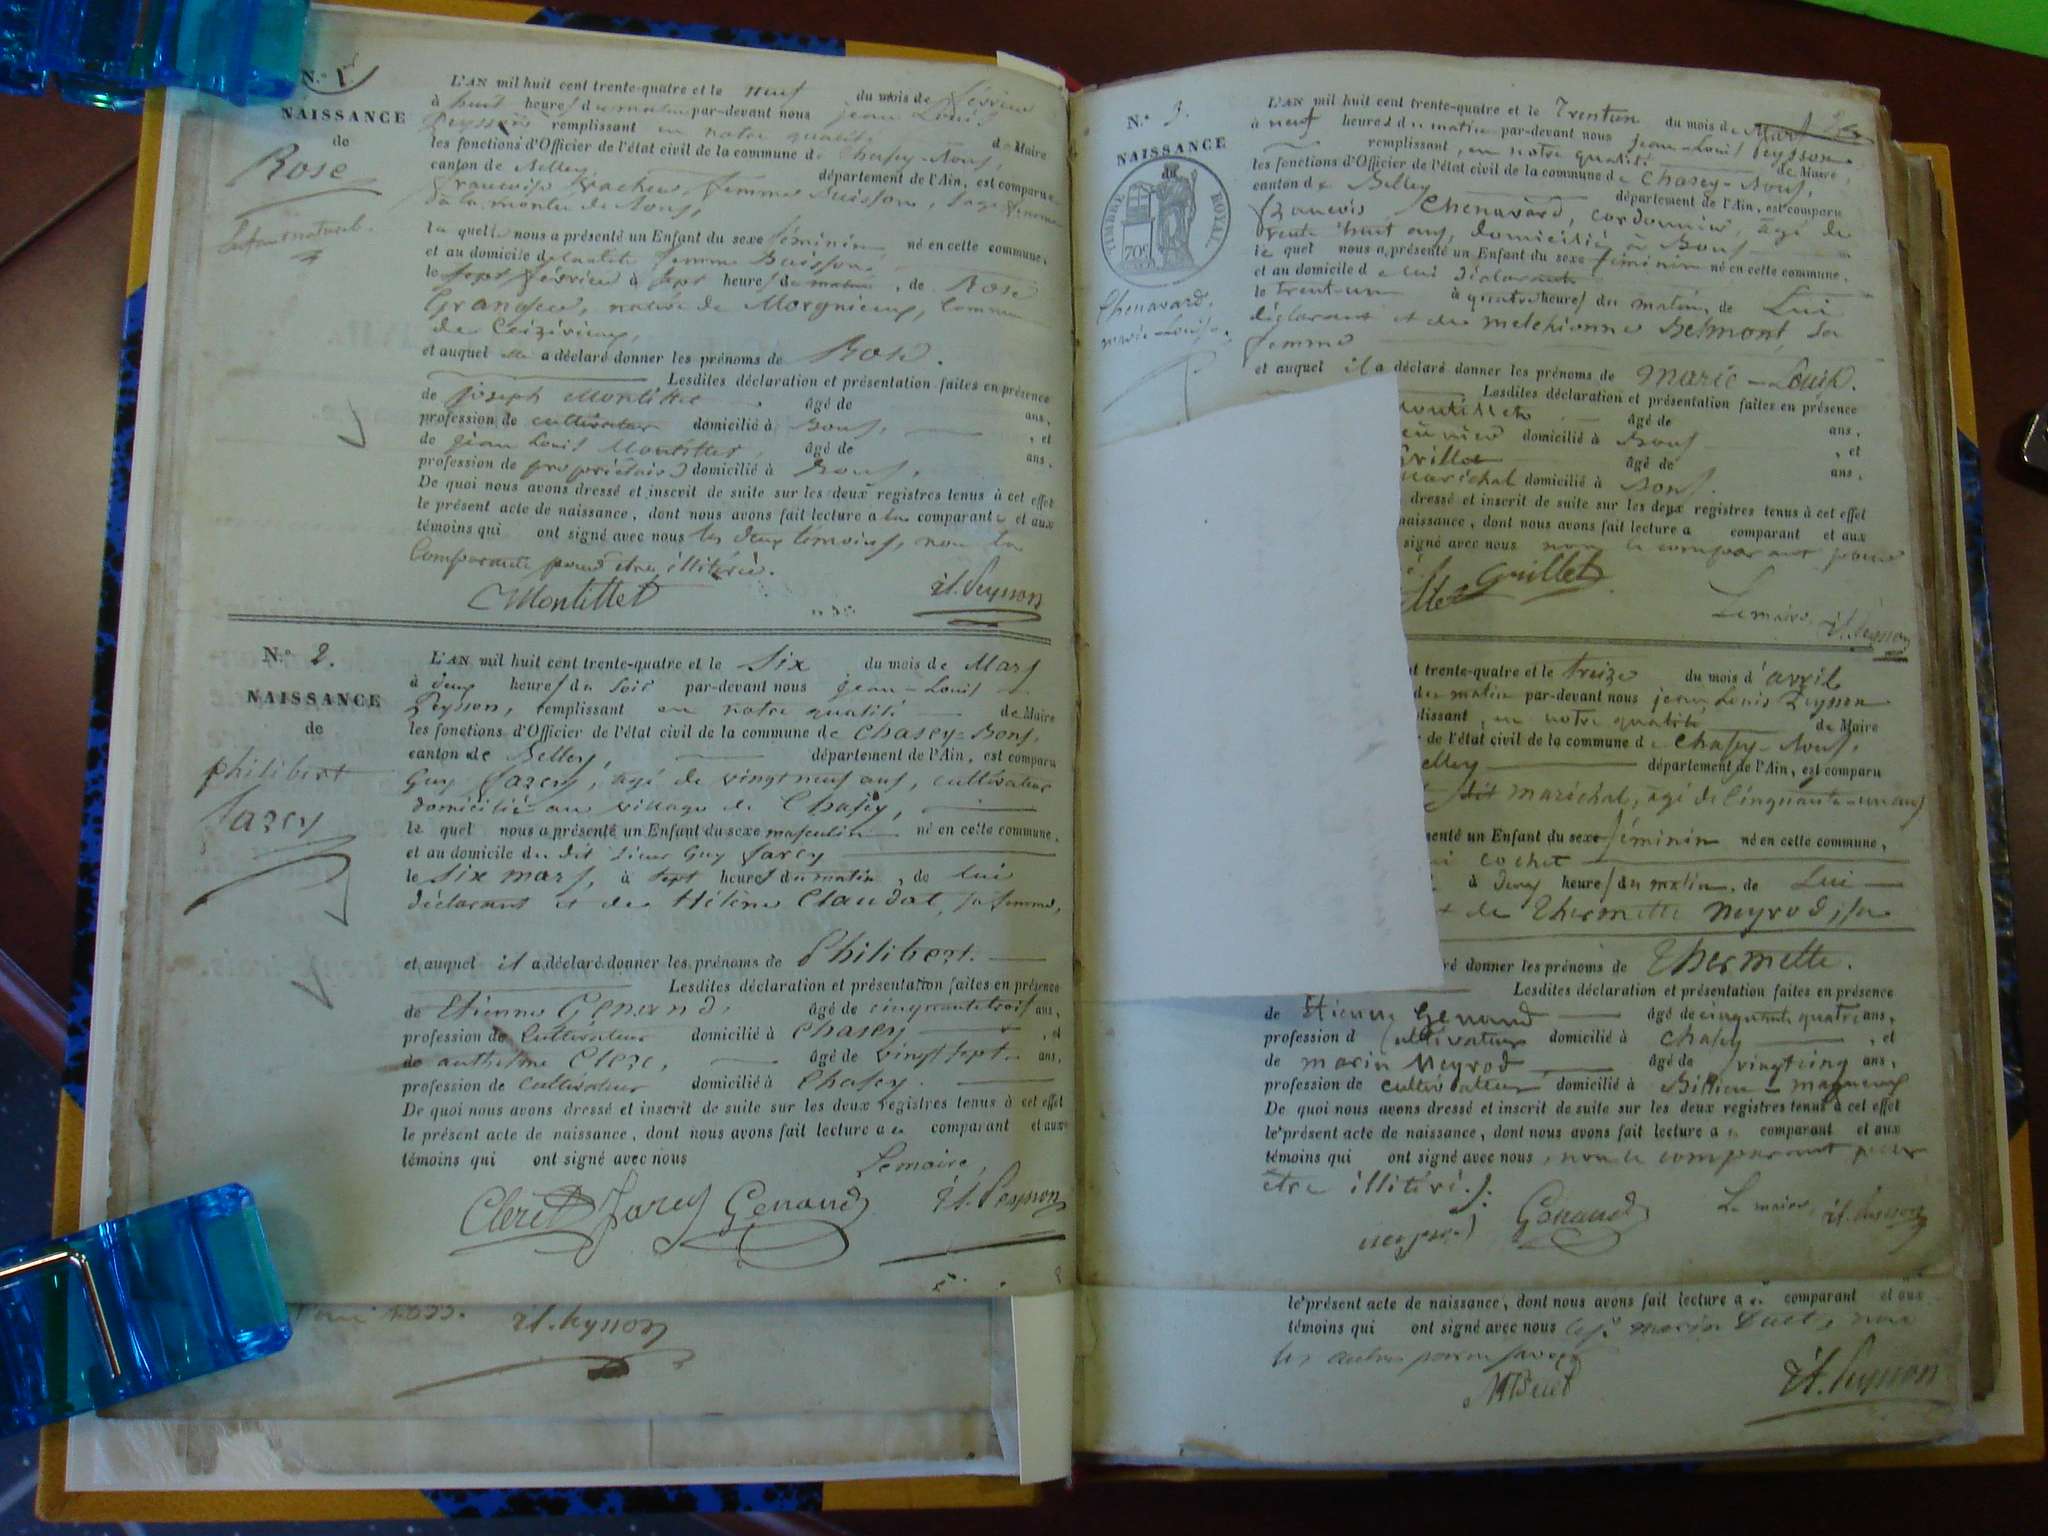 N.º 1.
NAISSANCE
de
Rose
Enfant naturel.
L'AN mil huit cent trente-quatre et le neuf du mois de février
à huit heures du matin par-devant nous jean Louis
Peysson remplissant en notre qualité de Maire
les fonctions d'Officier de l'état civil de la commune de Chasey-Bons,
canton de Belley département de l'Ain, est comparue
françoise femme Buisson, sage femme
de Bons,
la quelle nous a présenté un Enfant du sexe féminin né en cette commune,
et au domicile de ladite femme Buisson,
le sept février à sept heures du matin, de Rose
native de Morgnieux, commune
de Ceizérieux,
et auquel elle a déclaré donner les prénoms de Rose.
Lesdites déclaration et présentation faites en présence
de joseph Montillet âgé de ans,
profession de cultivateur domicilié à Bons, et
de jean Louis Montillet, âgé de ans,
profession de propriétaire domicilié à Bons,
De quoi nous avons dressé et inscrit de suite sur les deux registres tenus à cet effet
le présent acte de naissance, dont nous avons fait lecture a la comparante et aux
témoins qui ont signé avec nous les deux témoins, non la
Comparante pour être illitérée.
Montillet J.L. Peysson
N.º 2.
NAISSANCE
de
philibert
farcy
L'AN mil huit cent trente-quatre et le six du mois de Mars
à deux heures du soir par-devant nous jean-Louis
Peysson, remplissant en notre qualité de Maire
les fonctions d'Officier de l'état civil de la commune de Chasey-Bons,
canton de Belley, département de l'Ain, est comparu
Guy farcy, âgé de vingt neuf ans, cultivateur
domicilié au village de Chasey,
le quel nous a présenté un Enfant du sexe masculin né en cette commune,
et au domicile du dit sieur Guy farcy
le six mars, à sept heures du matin, de lui
déclarant et de Hélène Claudat, sa femme,
et auquel il a déclaré donner les prénoms de Philibert.
Lesdites déclaration et présentation faites en présence
de Etienne Genand, âgé de cinquante trois ans,
profession de Cultivateur domicilié à Chasey, et
de anthelme Clerc, âgé de vingt sept ans,
profession de cultivateur domicilié à Chasey.
De quoi nous avons dressé et inscrit de suite sur les deux registres tenus à cet effet
le présent acte de naissance, dont nous avons fait lecture a comparant et aux
témoins qui ont signé avec nous
Le maire,
Clerc farcy Genand J.L. Peysson
J.L. Peysson
N.º 3.
NAISSANCE
TIMBRE ROYAL
70c
Chenavard,
marie-Louise,
L'AN mil huit cent trente-quatre et le Trente un du mois de Mars
à neuf heures du matin par-devant nous jean-Louis Peysson
remplissant, en notre qualité de Maire,
les fonctions d'Officier de l'état civil de la commune de Chasey-Bons,
canton de Belley département de l'Ain, est comparu
François Chenavard, cordonnier, âgé de
trente huit ans, domicilié à Bons
le quel nous a présenté un Enfant du sexe féminin né en cette commune,
et au domicile de lui déclarant
le trente-un à quatre heures du matin, de Lui
déclarant et de melchionne Belmont, sa
femme
et auquel il a déclaré donner les prénoms de Marie-Louise.
Lesdites déclaration et présentation faites en présence
Montillet âgé de ans,
domicilié à Bons, et
Grillet âgé de ans,
maréchal domicilié à Bons.
dressé et inscrit de suite sur les deux registres tenus à cet effet
naissance, dont nous avons fait lecture a comparant et aux
signé avec nous non le comparant pour
Grillet
Le maire, J.L. Peysson
t trente-quatre et le treize du mois d'avril
du matin par-devant nous jean Louis Peysson
plissant, en notre qualité de Maire
de l'état civil de la commune de Chasey-Bons,
elley département de l'Ain, est comparu
dit maréchal, âgé de cinquante un ans
senté un Enfant du sexe féminin né en cette commune,
cochet
à deux heures du matin, de Lui
et de Thermette Neyrod, sa
ré donner les prénoms de Thermette.
Lesdites déclaration et présentation faites en présence
de Etienne Genand âgé de cinquante quatre ans,
profession de cultivateur domicilié à Chasey, et
de marin Neyrod, âgé de vingt cinq ans,
profession de cultivateur domicilié à Billieu-magnieux
De quoi nous avons dressé et inscrit de suite sur les deux registres tenus à cet effet
le présent acte de naissance, dont nous avons fait lecture a comparant et aux
témoins qui ont signé avec nous, non le comparant pour
être illitéré.
Genand Le maire, J.L. Peysson
le présent acte de naissance, dont nous avons fait lecture a comparant et aux
témoins qui ont signé avec nous marin Buet, non
les autres pour
MBuet J.L. Peysson